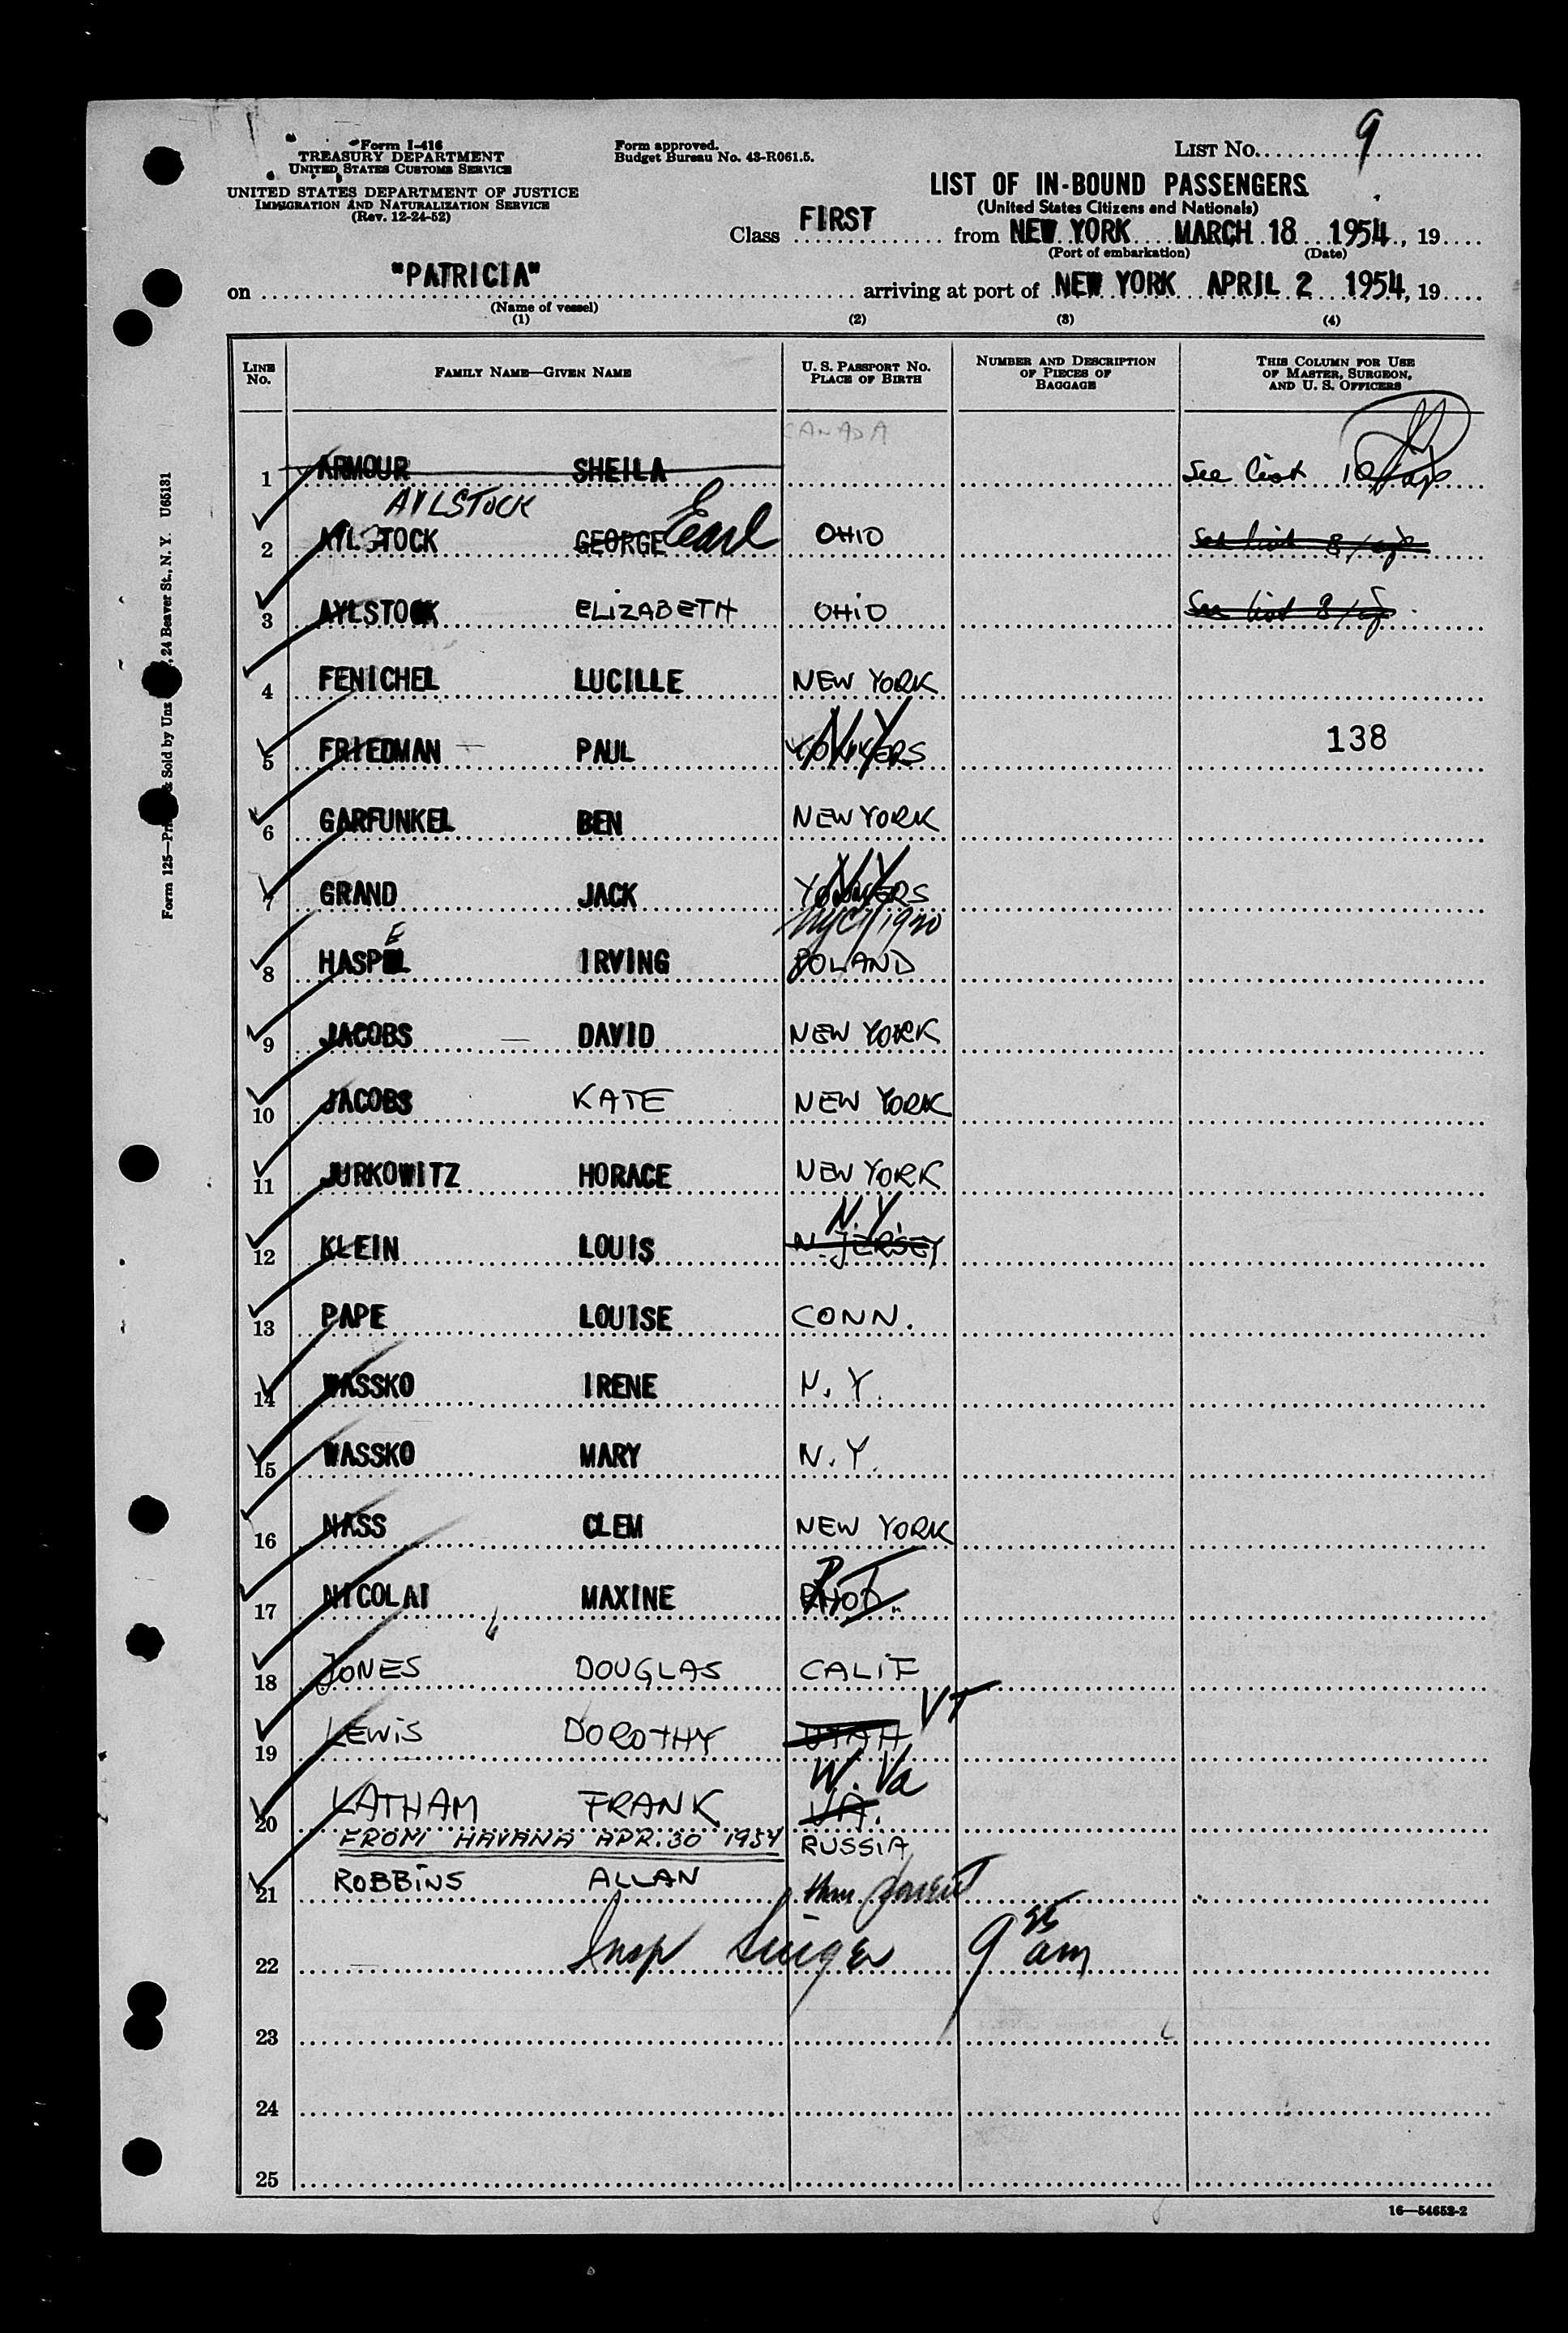 Form I-416
TREASURY DEPARTMENT
UNITED STATES CUSTOMS SERVICE
UNITED STATES DEPARTMENT OF JUSTICE
IMMIGRATION AND NATURALIZATION SERVICE
(Rev. 12-24-52)
Form approved.
Budget Bureau No. 43-R061.5.
LIST No. 9
LIST OF IN-BOUND PASSENGERS
(United States Citizens and Nationals)
Class FIRST from NEW YORK MARCH 18 1954, 19
(Port of embarkation) (Date)
on "PATRICIA" arriving at port of NEW YORK APRIL 2 1954, 19
(Name of vessel)
(1) (2) (3) (4)
LINE No. FAMILY NAME—GIVEN NAME U. S. PASSPORT NO. PLACE OF BIRTH NUMBER AND DESCRIPTION OF PIECES OF BAGGAGE THIS COLUMN FOR USE OF MASTER, SURGEON, AND U. S. OFFICERS
CANADA
1 ARMOUR SHEILA See list 10
AYLSTOCK
2 AYLSTOCK GEORGE Earl OHIO See list 8
3 AYLSTOCK ELIZABETH OHIO See list 8
4 FENICHEL LUCILLE NEW YORK
5 FRIEDMAN PAUL YONKERS NY 138
6 GARFUNKEL BEN NEW YORK
7 GRAND JACK YONKERS NY
NYC 1920
8 HASPEL E IRVING POLAND
9 JACOBS DAVID NEW YORK
10 JACOBS KATE NEW YORK
11 JURKOWITZ HORACE NEW YORK
N.Y.
12 KLEIN LOUIS N. JERSEY
13 PAPE LOUISE CONN.
14 WASSKO IRENE N. Y.
15 WASSKO MARY N. Y.
16 NASS CLEM NEW YORK
17 NICOLAI MAXINE RHOD.
18 JONES DOUGLAS CALIF
19 LEWIS DOROTHY UTAH VT
W. Va
20 LATHAM FRANK VA.
FROM HAVANA APR. 30 1954 RUSSIA
21 ROBBINS ALLAN thru parent
22 Insp Singer 9 am
23
24
25
16—54652-2
Form 125—Pri & Sold by Unz , 24 Beaver St., N. Y. U65131